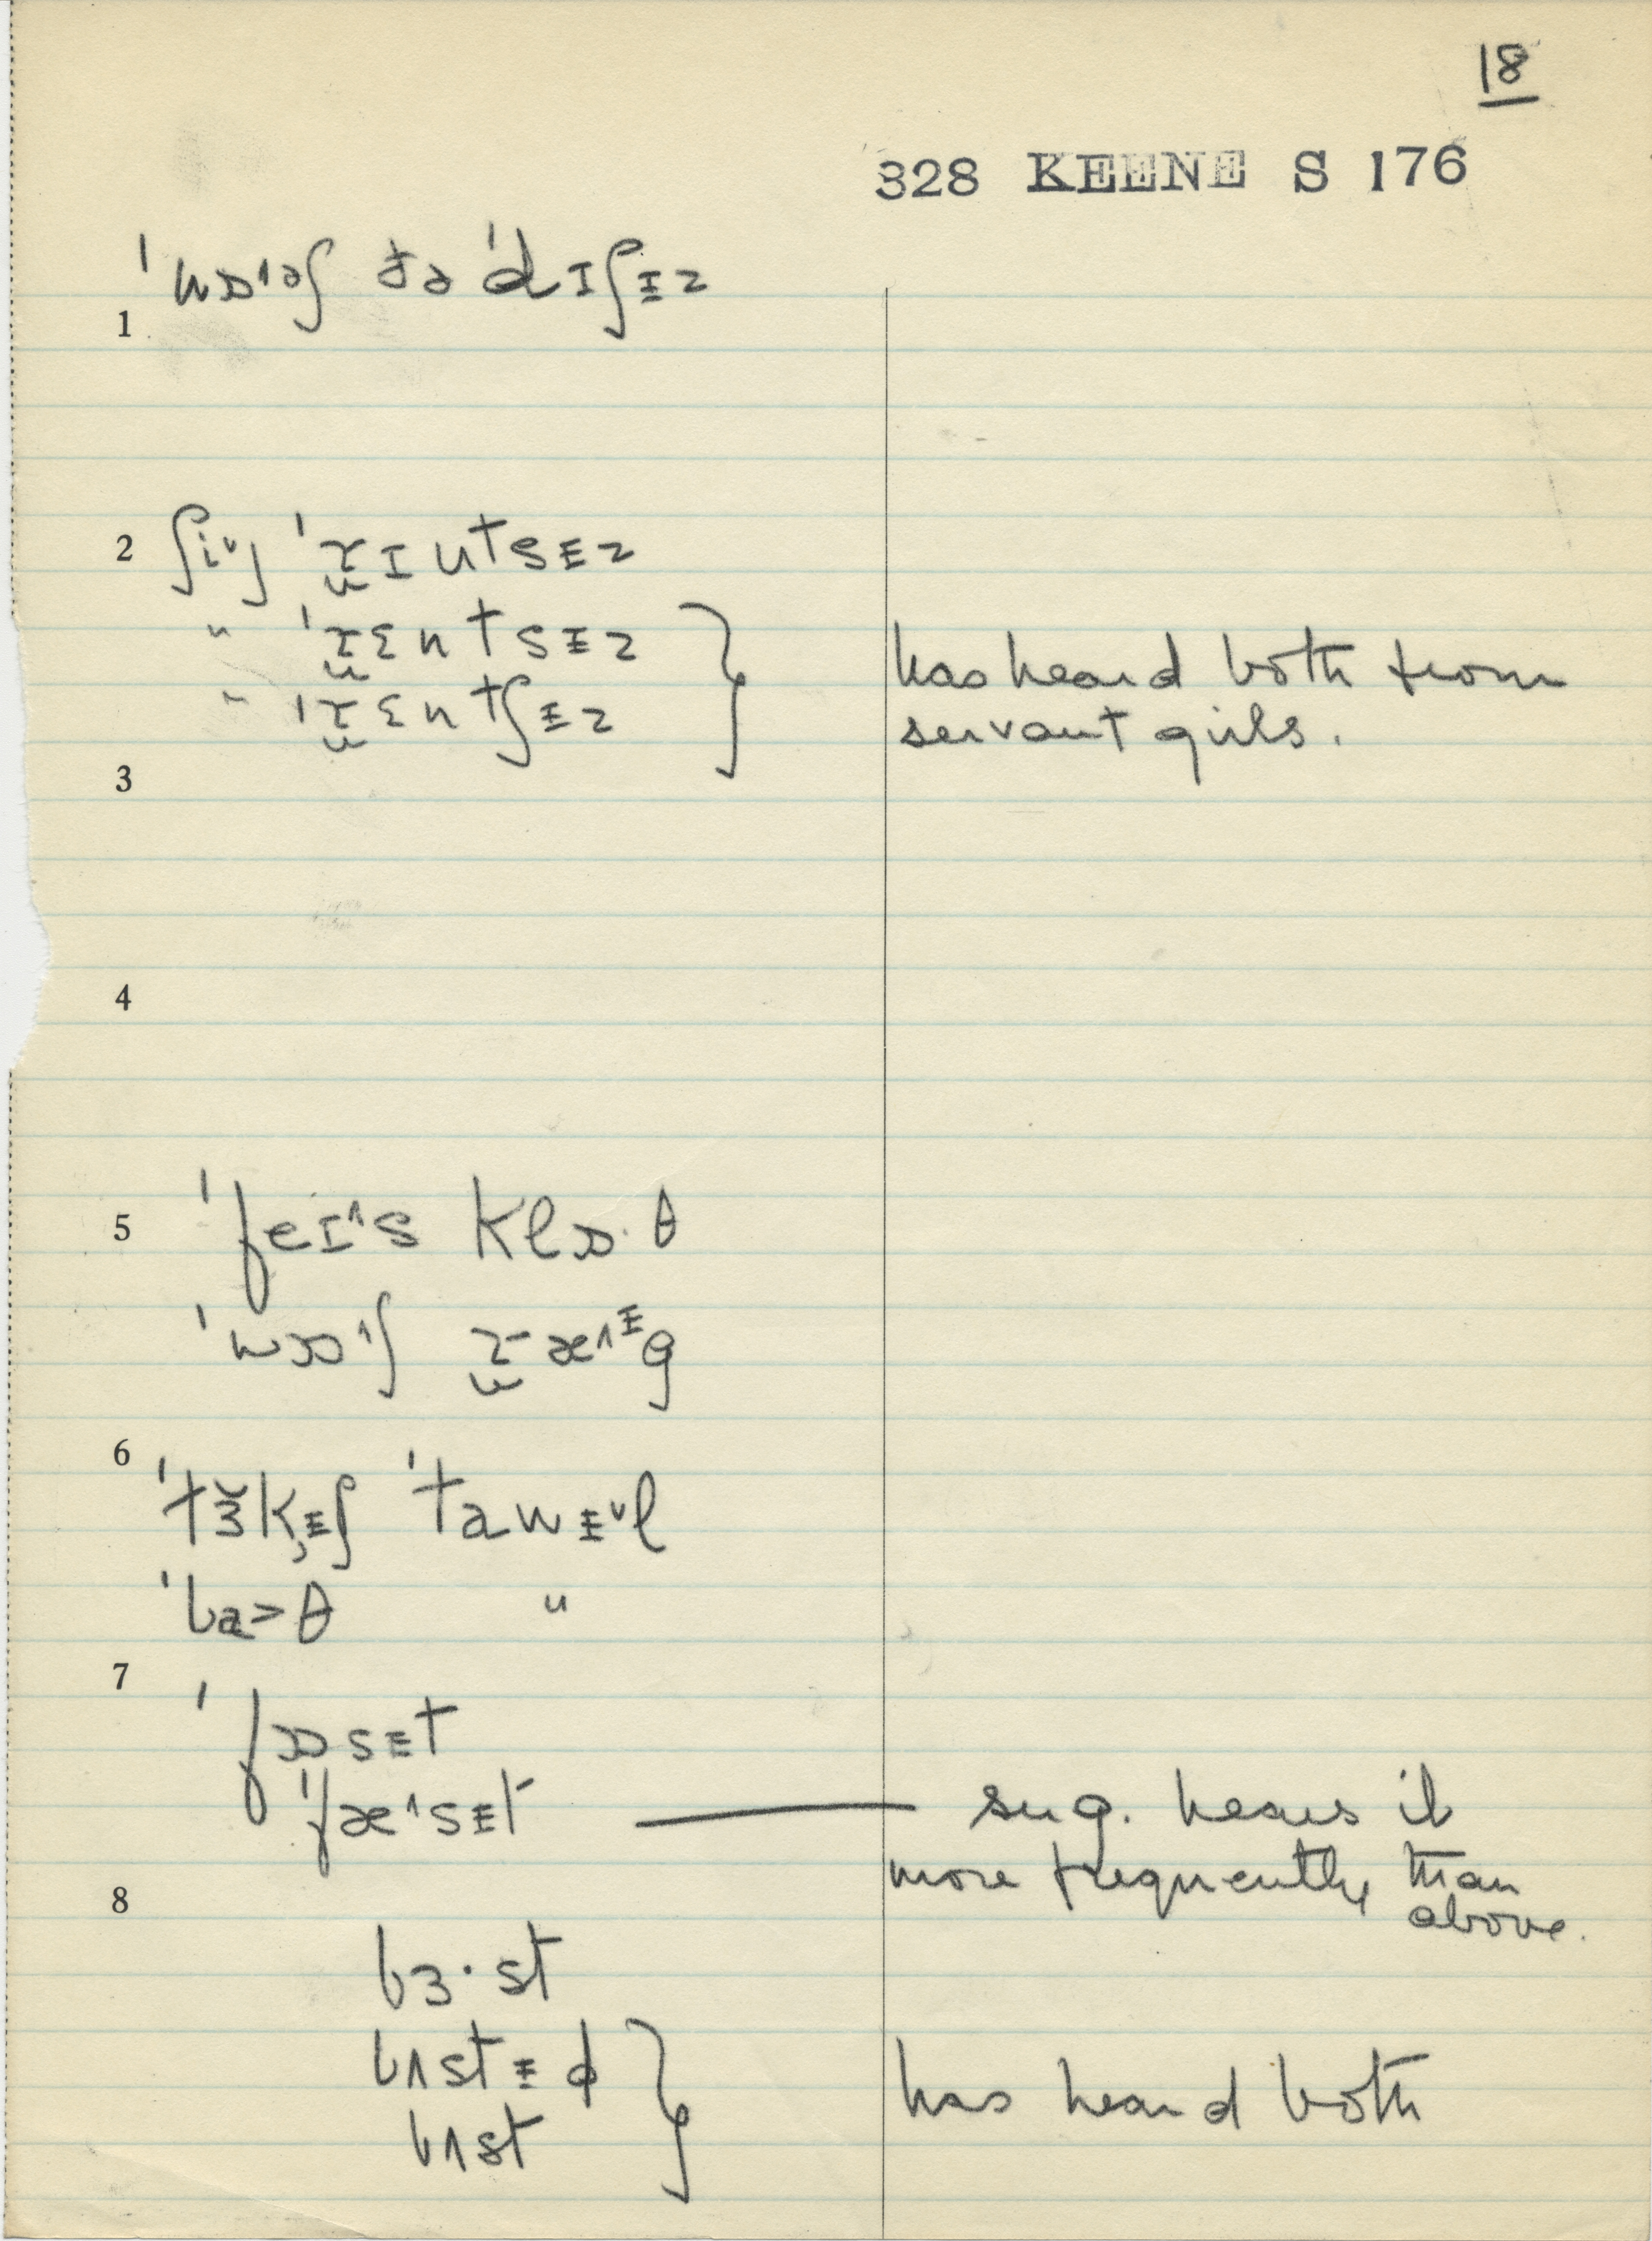 18
328 KEENE S 176
ˈwɒ˄əʃ ðə ˈdɪʃᵻz
1
2 ʃi˅ ˈrɪntsᵻz
" ˈrɛntsᵻz
" ˈrɛntʃᵻz
has heard both from
servant girls.
3
4
5 ˈfeɪ˄s klɒ·θ
ˈwɒ˄ʃ ræ˄ᵻg
6
ˈtɜ̆kᵻʃ ˈtawᵻ˅l
ˈba>θ "
7
ˈfɒsᵻt
ˈfæ˄sᵻt — sug. hears it
more frequently than
above.
8
bɜ·st
bʌstᵻd
bʌst
has heard both